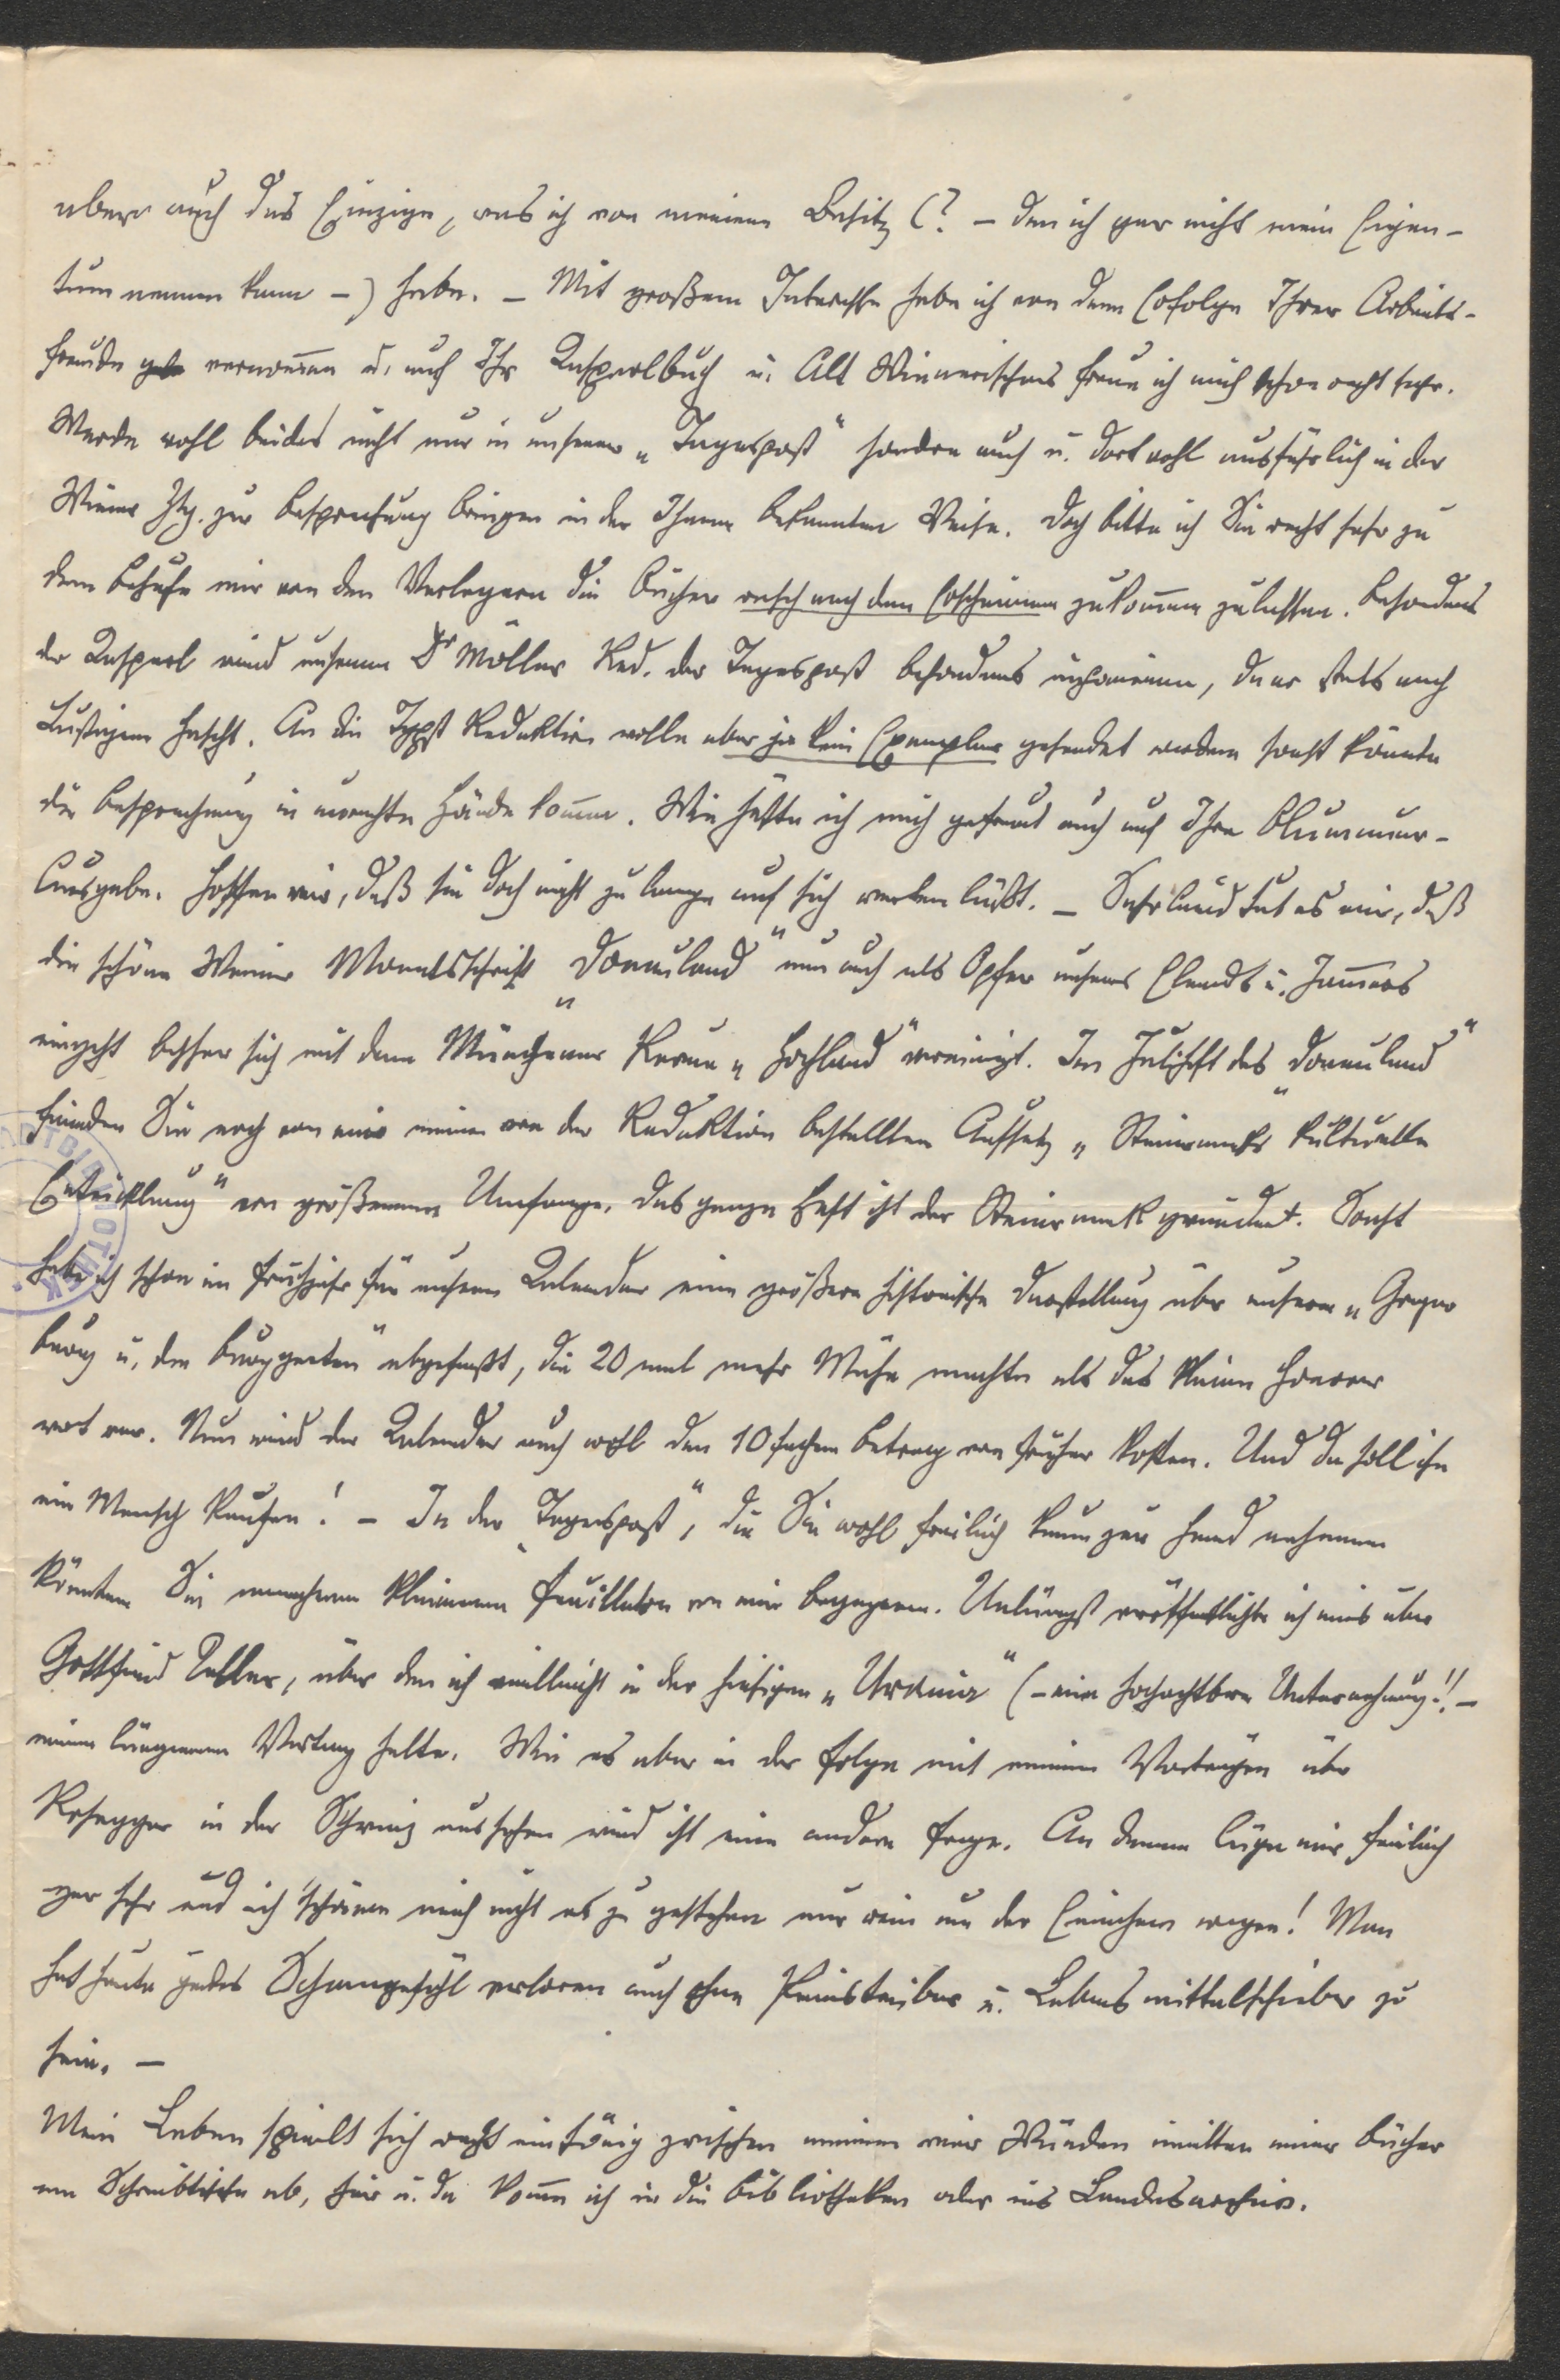 aber auch das Einzige, was ich von meinem Besitz (? – den ich gar nicht mein Eigen-
tum nennen kann –) habe. – Mit großem Interesse habe ich von dem Erfolge Ihrer Arbeits-
freude vernommen u. auf Ihr Kasperlbuch u. Alt Wienerisches freue ich mich schon recht sehr.
Werde wohl beides nicht nur in unserer „Tagespost" sondern auch u. dort wohl ausführlich in der
Wiener Ztg. zur Besprechung bringen in der Ihnen bekannten Weise. Doch bitte ich Sie recht sehr zu
dem Behufe mir von den Verlegern die Bücher rasch nach dem Erscheinen zukommen zu lassen. Besonders
der Kasperl wird unserem Dr Möller Red. der Tagespost besonders, da er stets nach
Lustigem hascht. An die Tgpst Redaktion wolle aber ja kein Exemplar gesendet werden sonst könnte
die Besprechung in unrechte Hände komme. Wie hätte ich mich gefreut auch auf Ihre Blumauer-
Ausgabe. Hoffen wir, daß sie doch nicht zu lange auf sich warten läßt. – Sehr leid tut es mir, daß
die schöne Wiener Monatsschrift „Donauland" nun auch als Opfer unseres Elends u. Jammers
eingeht besser sich mit dem Münchener Revue „Hochland" vereinigt. Im Juliheft des „Donauland"
finden Sie noch von mir meinen von der Redaktion bestellten Aufsatz „Steiermarks kulturelle
Entwicklung" von größerem Umfange. Das ganze Heft ist der Steiermark gewidmet. Sonst
habe ich schon im Frühjahr für unseren Kalender eine größere historische Darstellung über unsere „Grazer
Burg u. den Burggarten" abgefaßt, die 20 mal mehr Mühe machte als das kleine Honorar
wert war. Nun wird der Kalender auch wohl den 10fachen Betrag von früher kosten. Und da soll ihn
ein Mensch kaufen! – In der „Tagespost", die Sie wohl freilich kaum zur Hand nehmen
könnten Sie manchem kleineren Feuilleton von mir begegnen. Unlängst veröffentlichte ich eins über
Gottfried Keller, über den ich vielleicht in der hiesigen „Urania" (– eine hochachtbare Unternehmung!! –
einen längeren Vortrag halte. Wie es aber in der Folge mit meinen Vorträgen über
Rosegger in der Schweiz aussehen wird ist eine andere Frage. An denen läge mir freilich
gar sehr und ich schäme mich nicht es zu gestehen nur rein um der wegen! Man
hat heute jedes Schamgefühl verloren auch ohne Preistreiber u. Lebensmittelschieber zu
sein. –
Mein Leben spielt sich recht eintönig zwischen meinen vier Wänden inmitten meiner Bücher
am Schreibtische ab, hie u. da komme ich in die Bibliotheken oder ins Landesarchiv.